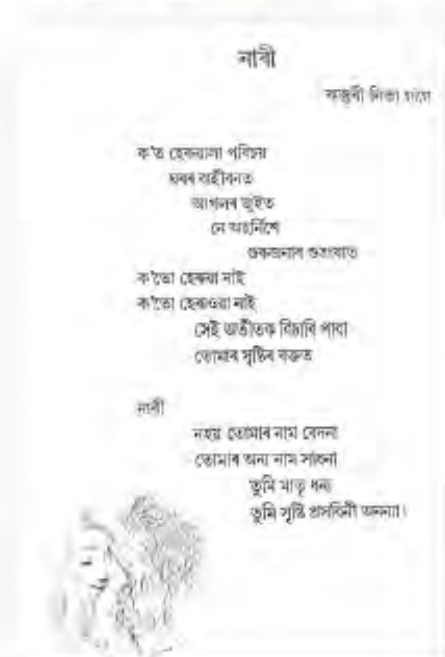 নাৰী
কস্তুৰী নিভা গগৈ
ক'ত হেৰুৱালা পৰিচয়
ঘৰৰ বাহীবনত
আখলৰ জুইত
নে অহৰ্নিশে
গুৰুজনাৰ শুশ্ৰূষাত
ক'তো হেৰুৱা নাই
ক'তো হেৰাওৱা নাই
সেই অতীতক বিচাৰি পাবা
তোমাৰ সৃষ্টিৰ বক্তত
নাৰী
নহয় তোমাৰ নাম বেদনা
তোমাৰ অন্য নাম সাধনা
তুমি মাতৃ ধন্য
তুমি সৃষ্টি প্ৰসবিনী অনন্যা।